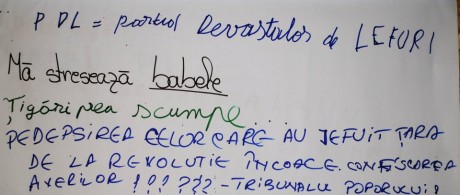 PDL = partid Devastator de LEFURI
Mă stresează babele
Țigări prea scumpe...
PEDEPSIREA CELOR CARE AU JEFUIT ȚARA
DE LA REVOLUTIE ÎNCOACE. CONFISCAREA
AVERILOR !!! ??? - TRIBUNALU POPORULUI!